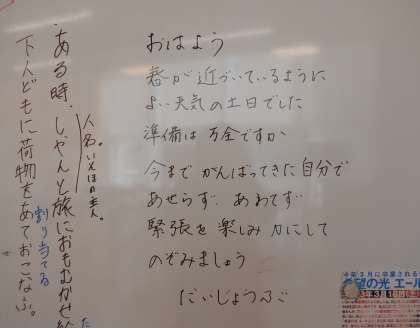 おはよう
春が近づいているように
よい天気の土日でした
準備は万全ですか
今までがんばってきた自分で
あせらず、あわてず
緊張を楽しみ力にして
のぞみましょう
だいじょうぶ
ある時、しやんと旅におもむかせ給
人名。いえはの主人。
下人どもに荷物をあておこなふ。
割り当てる
た
今年3月に卒業される
希望の光 エール